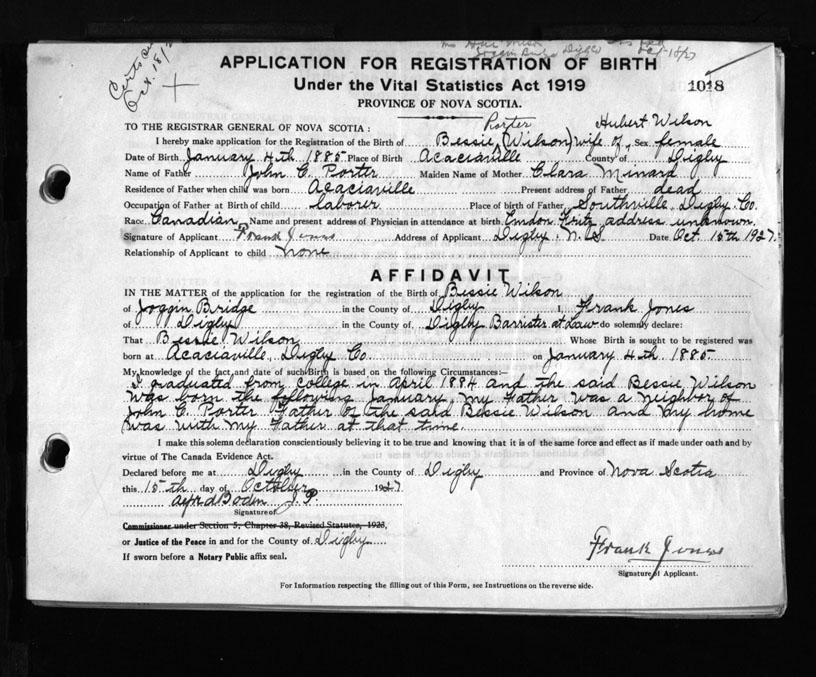 Certs
Oct. 18/
Oct-18/27
Joggin Bridge Digby
APPLICATION FOR REGISTRATION OF BIRTH
Under the Vital Statistics Act 1919
1018
PROVINCE OF NOVA SCOTIA.
Porter Hubert Wilson
TO THE REGISTRAR GENERAL OF NOVA SCOTIA:
I hereby make application for the Registration of the Birth of Bessie (Wilson) wife of Sex female
Date of Birth January 4th 1885 Place of Birth Acaciaville County of Digby
Name of Father John C. Porter Maiden Name of Mother Clara Minard
Residence of Father when child was born Acaciaville Present address of Father dead
Occupation of Father at Birth of child laborer Place of birth of Father Southville, Digby Co.
Race Canadian Name and present address of Physician in attendance at birth Fritz, address unknown.
Signature of Applicant Frank Jones Address of Applicant Digby, N.S Date Oct. 15th 1927.
Relationship of Applicant to child None
AFFIDAVIT
IN THE MATTER of the application for the registration of the Birth of Bessie Wilson
of Joggin Bridge in the County of Digby I, Frank Jones
of Digby in the County of Digby Barrister at Law do solemnly declare:
That Bessie Wilson Whose Birth is sought to be registered was
born at Acaciaville, Digby Co. on January 4th. 1885.
My knowledge of the fact and date of such Birth is based on the following Circumstances:—
I graduated from college in April 1884 and the said Bessie Wilson
was born the following January, my Father was a neighbor of
John C. Porter Father of the said Bessie Wilson and my home
was with my Father at that time.
I make this solemn declaration conscientiously believing it to be true and knowing that it is of the same force and effect as if made under oath and by
virtue of The Canada Evidence Act.
Declared before me at Digby in the County of Digby and Province of Nova Scotia
this 15th day of October 1927
Boden J.P.
Signature of
Commissioner under Section 5, Chapter 38, Revised Statutes, 1923,
or Justice of the Peace in and for the County of Digby
If sworn before a Notary Public affix seal.
Frank Jones
Signature of Applicant.
For Information respecting the filling out of this Form, see Instructions on the reverse side.